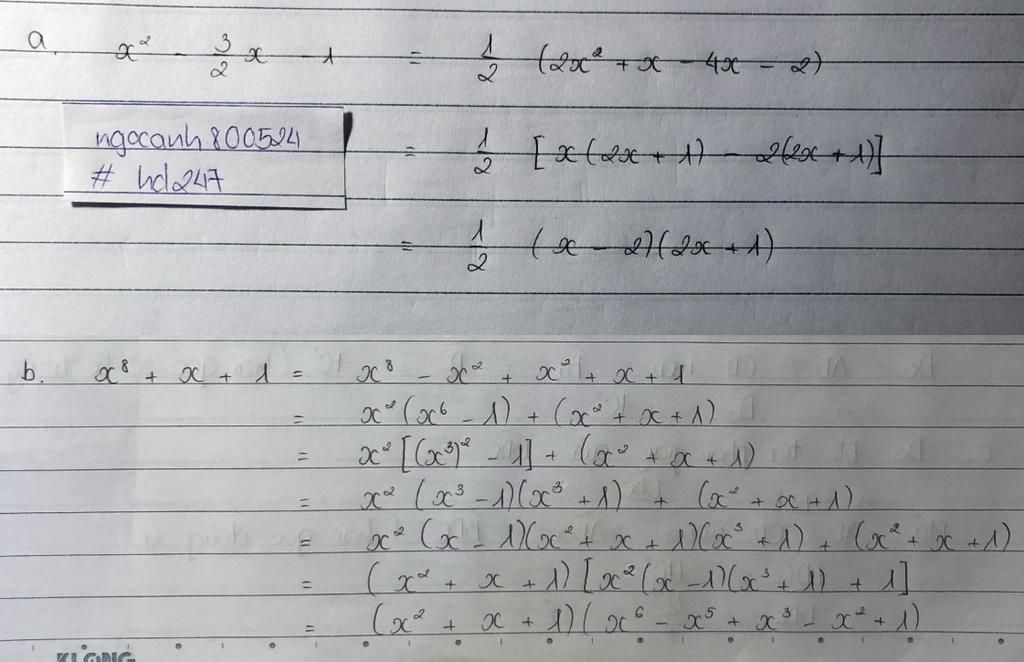 a. x² - 3/2 x - 1 = 1/2 (2x² + x - 4x - 2)
ngocanh800524
# hd247
= 1/2 [x(2x + 1) - 2(2x + 1)]
= 1/2 (x - 2)(2x + 1)
b. x⁸ + x + 1 = x⁸ - x² + x² + x + 1
= x²(x⁶ - 1) + (x² + x + 1)
= x²[(x³)² - 1] + (x² + x + 1)
= x² (x³ - 1)(x³ + 1) + (x² + x + 1)
= x² (x - 1)(x² + x + 1)(x³ + 1) + (x² + x + 1)
= (x² + x + 1)[x²(x - 1)(x³ + 1) + 1]
= (x² + x + 1)(x⁶ - x⁵ + x³ - x² + 1)
KLONG